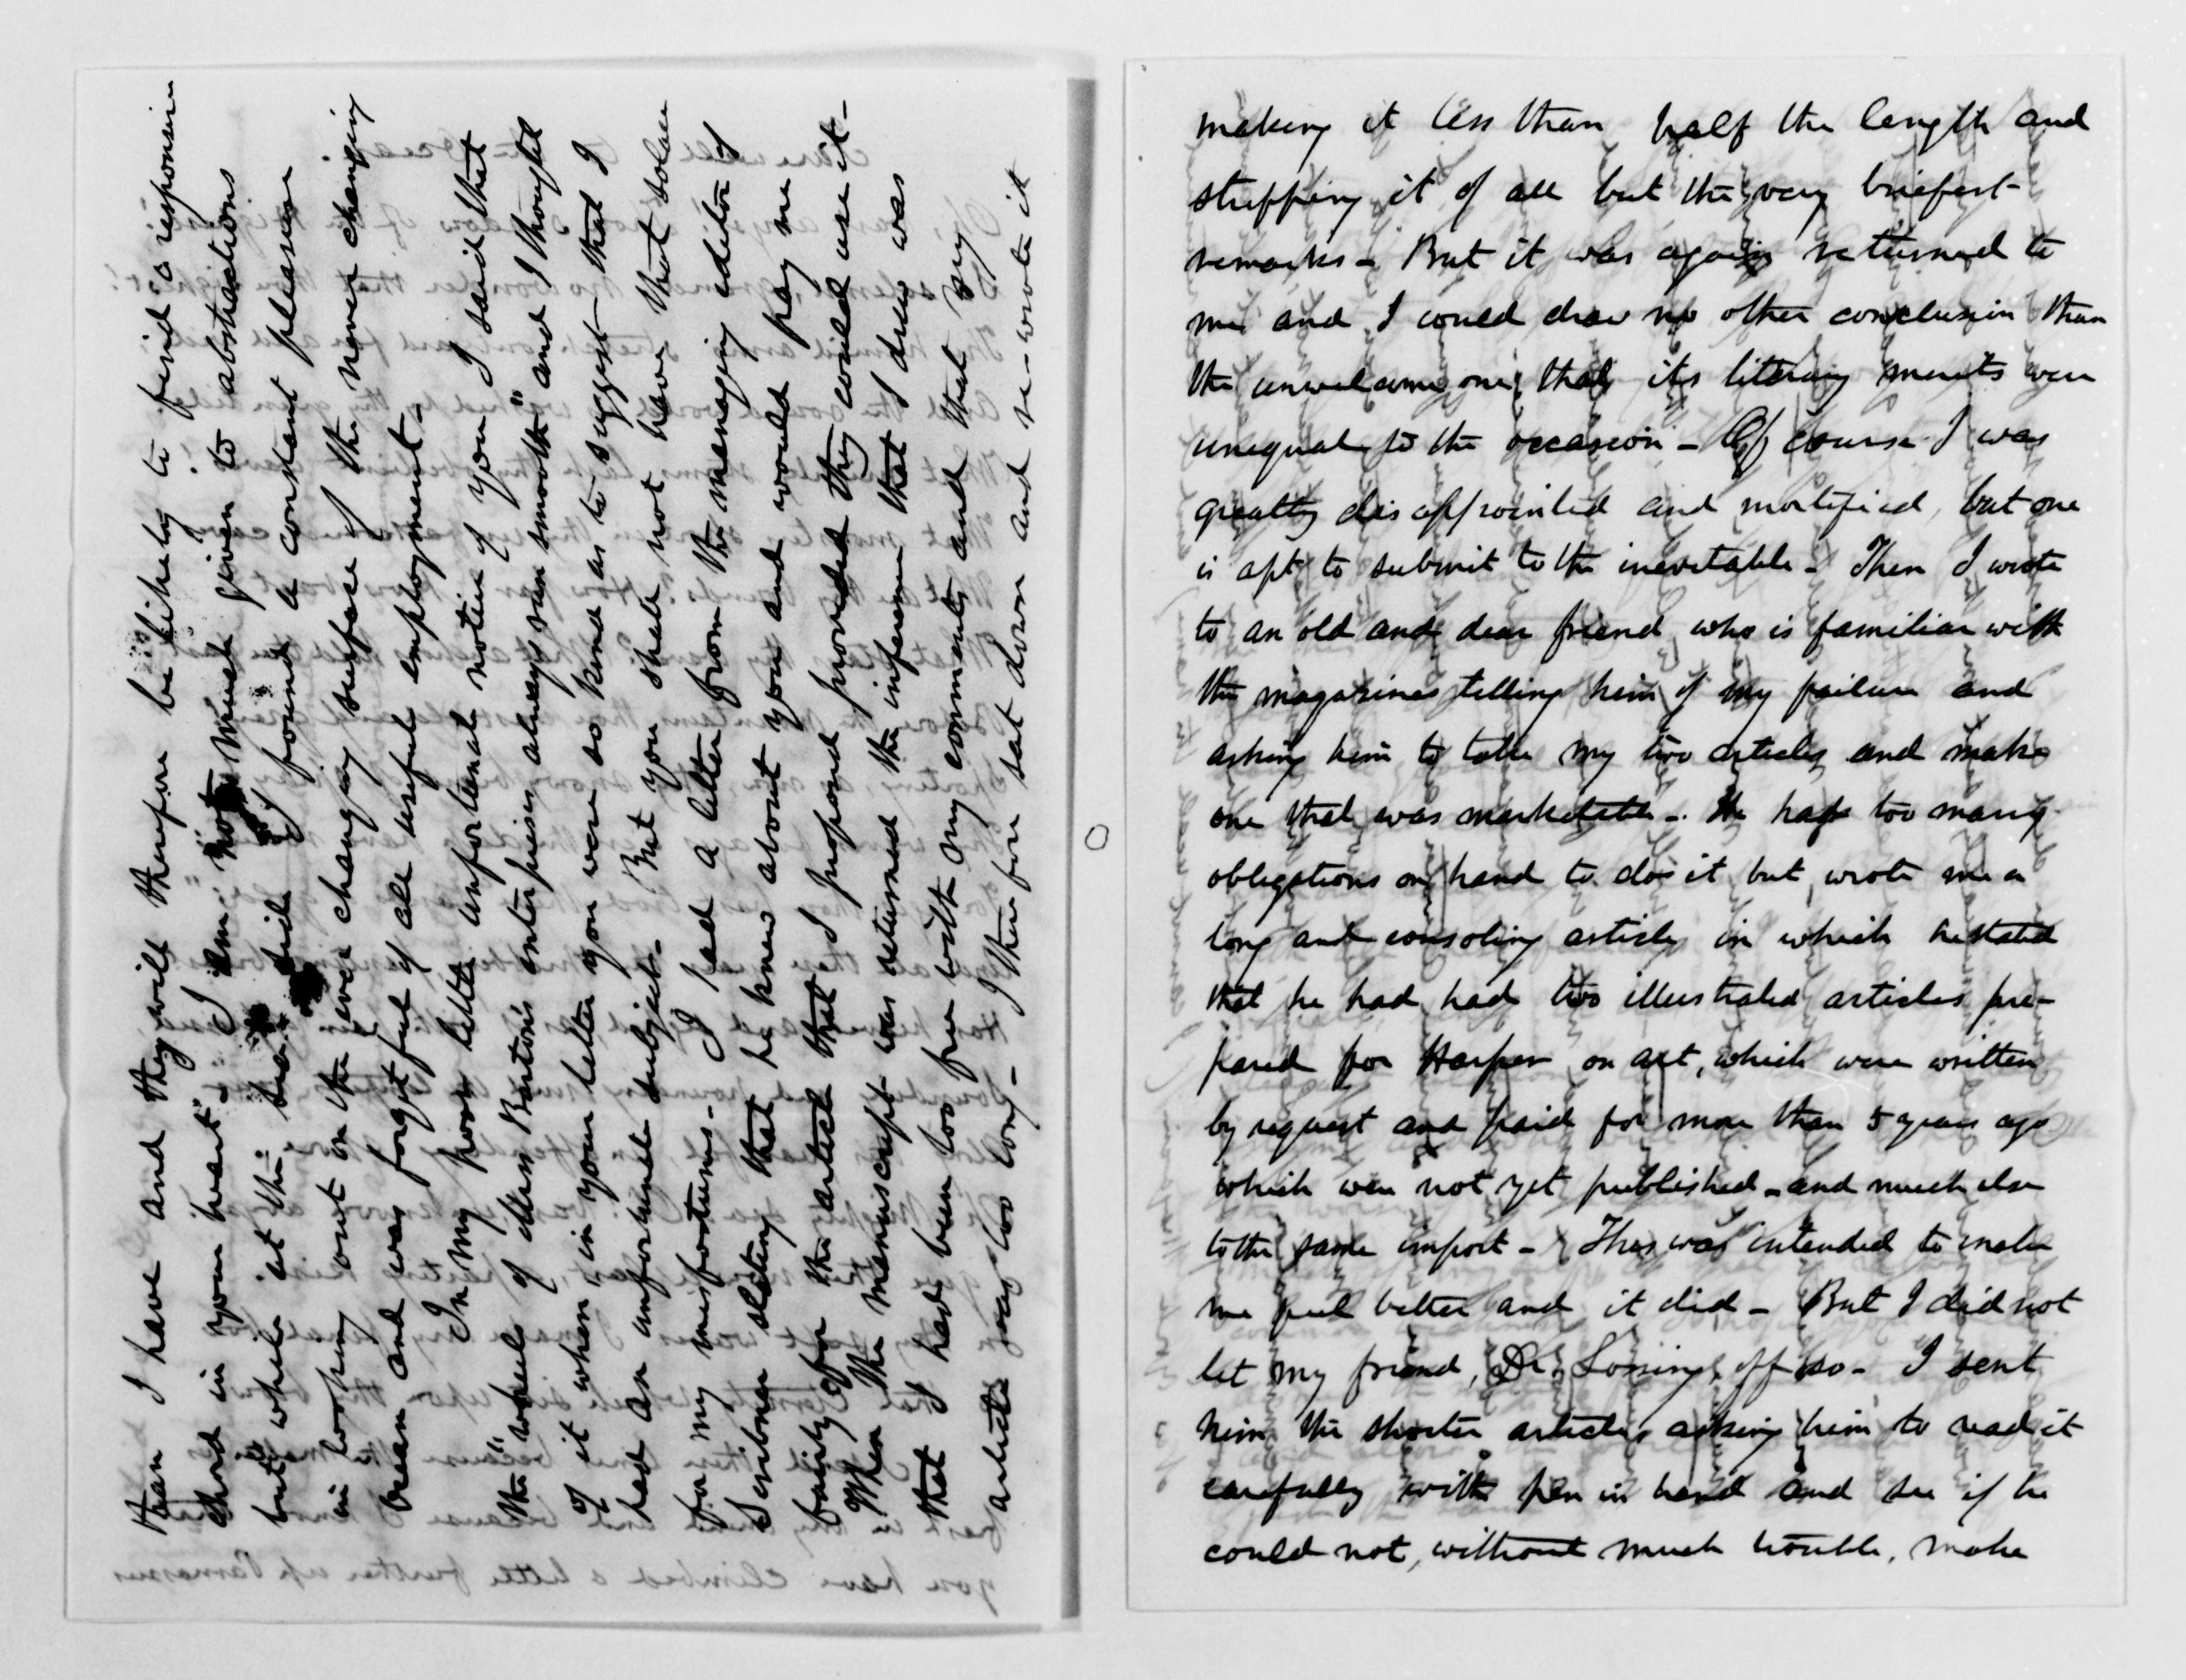 than I have and they will therefore be likely to find "a responsive
chord in your heart" - I am not much given to abstractions
but while at the sea side I found a constant pleasure
in looking out on the ever changing surface of the never changing
Ocean and was forgetful of all useful employment -
In my poor little unfortunate notice of you I said that
the "wheels of Miss Barton's enterprises always ran smooth" and I thought
of it when, in your letter you were so kind as to suggest that I
had an unfortunate subject - But you shall not have that solace
for my misfortunes - I had a letter from the managing editor of
Scribner stating that he knew about you and would pay me
fairly for the article that I proposed provided they could use it -
When the manuscript was returned the inference that I drew was
that I had been too free with my comments and that my
article was too long - I therefore sat down and re-wrote it
making it less than half the length and
stripping it of all but the very briefest
remarks - But it was again returned to
me and I could draw no other conclusion than
the unwelcome one that its literary merits were
unequal to the occasion - Of course I was
greatly disappointed and mortified, but one
is apt to submit to the inevitable - Then I wrote
to an old and dear friend who is familiar with
the magazines telling him of my failure and
asking him to take my two articles and make
one that was marketable - He had too many
obligations on hand to do it but wrote me a
long and consoling article in which he stated
that he had had two illustrated articles pre-
pared for Harper on art, which were written
by request and paid for more than 5 years ago
which were not yet published - and much else
to the same import - This was intended to make
me feel better and it did - But I did not
let my friend, Dr. Lossing, off so - I sent
him the shorter article, asking him to read it
carefully with pen in hand and see if he
could not, without much trouble, make